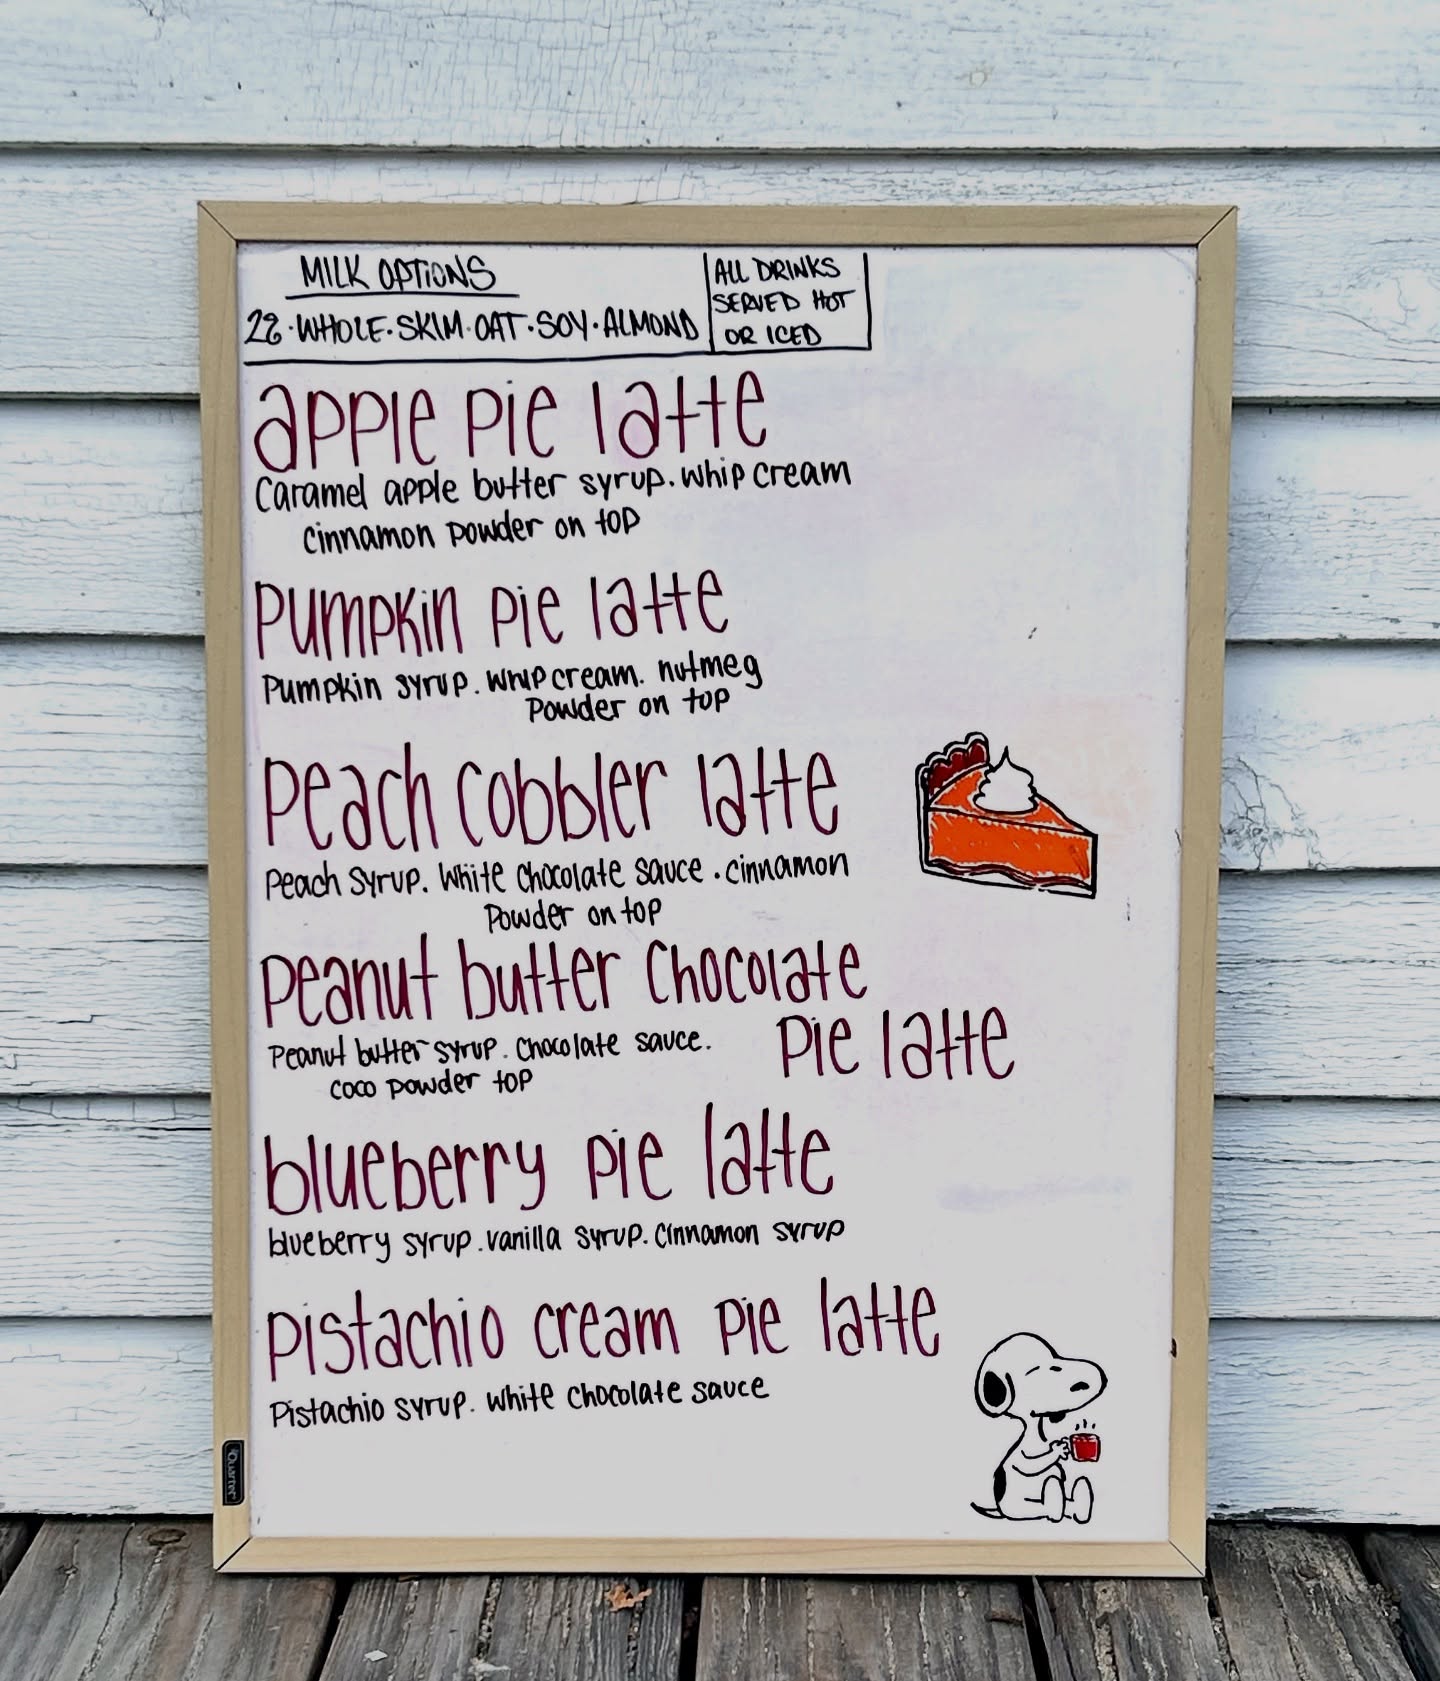 MILK OPTIONS
2% · WHOLE · SKIM · OAT · SOY · ALMOND
ALL DRINKS
SERVED HOT
OR ICED
apple pie latte
Caramel apple butter syrup. whip cream
cinnamon powder on top
Pumpkin pie latte
Pumpkin syrup. whip cream. nutmeg
Powder on top
Peach cobbler latte
Peach syrup. white chocolate sauce. cinnamon
Powder on top
Peanut butter chocolate
Pie latte
Peanut butter syrup. chocolate sauce.
coco powder top
blueberry pie latte
blueberry syrup. vanilla syrup. cinnamon syrup
Pistachio cream pie latte
Pistachio syrup. white chocolate sauce
Quartet